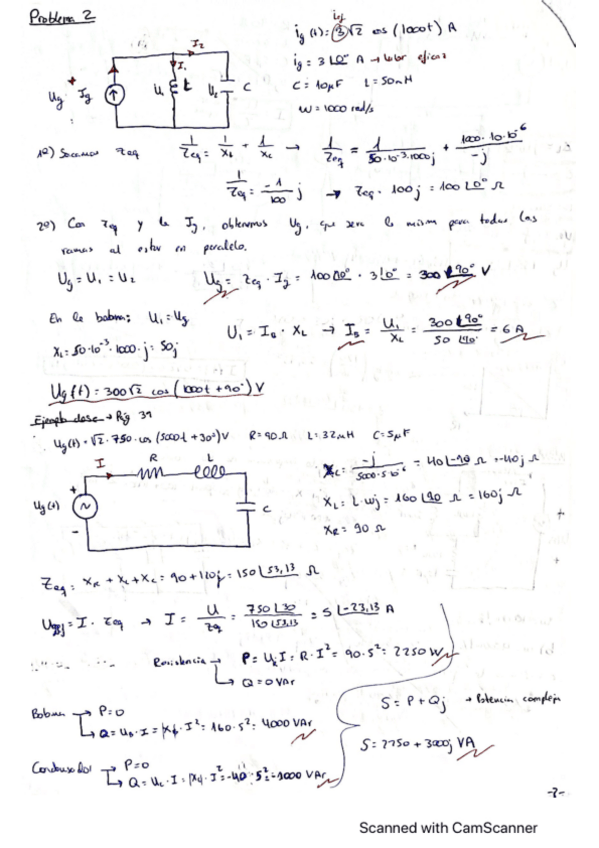 Problema 2
ief
ig(t) = 3√2 cos (1000t) A
ig = 3∠0° A → valor eficaz
C = 10μF L = 50mH
W = 1000 rad/s
Ug Ig I1 I2 U1 L U2 C
1º) Sacamos Zeq 1/Zeq = 1/XL + 1/XC → 1/Zeq = 1/50·10⁻³·1000j + 1000·10·10⁻⁶/-j
1/Zeq = -1/100 j → Zeq = 100j = 100∠0° Ω
2º) Con Zeq y la Ig, obtenemos Ug, que sera la misma para todas las
ramas al estar en paralelo.
Ug = U1 = U2 Ug = Zeq · Ig = 100∠0° · 3∠0° = 300∠90° V
En la bobina; U1 = Ug
XL = 50·10⁻³·1000·j = 50j
U1 = IB · XL → IB = U1/XL = 300∠90°/50∠90° = 6 A
Ug(t) = 300√2 cos (1000t + 90°) V
Ejemplo clase → Pág 31
Ug(t) = √2·750·cos (5000t + 30°) V R = 90Ω L = 32mH C = 5μF
I R L
Ug(t) C
XC = -j/5000·5·10⁻⁶ = 40∠-90 Ω = -40j Ω
XL = L·wj = 160∠90 Ω = 160j Ω
XR = 90 Ω
Zeq = XR + XL + XC = 90 + 120j = 150∠53,13 Ω
I = U/Zq = 750∠30/150∠53,13 = 5∠-23,13 A
Resistencia → P = UR·I = R·I² = 90·5² = 2250 W
→ Q = 0 VAr
Bobina → P = 0
→ Q = UB·I = |XL|·I² = 160·5² = 4000 VAr
S = P + Qj → Potencia compleja
S = 2250 + 3000j VA
Condensador → P = 0
→ Q = UC·I = |XC|·I² = -40·5² = -1000 VAr
-2-
Scanned with CamScanner